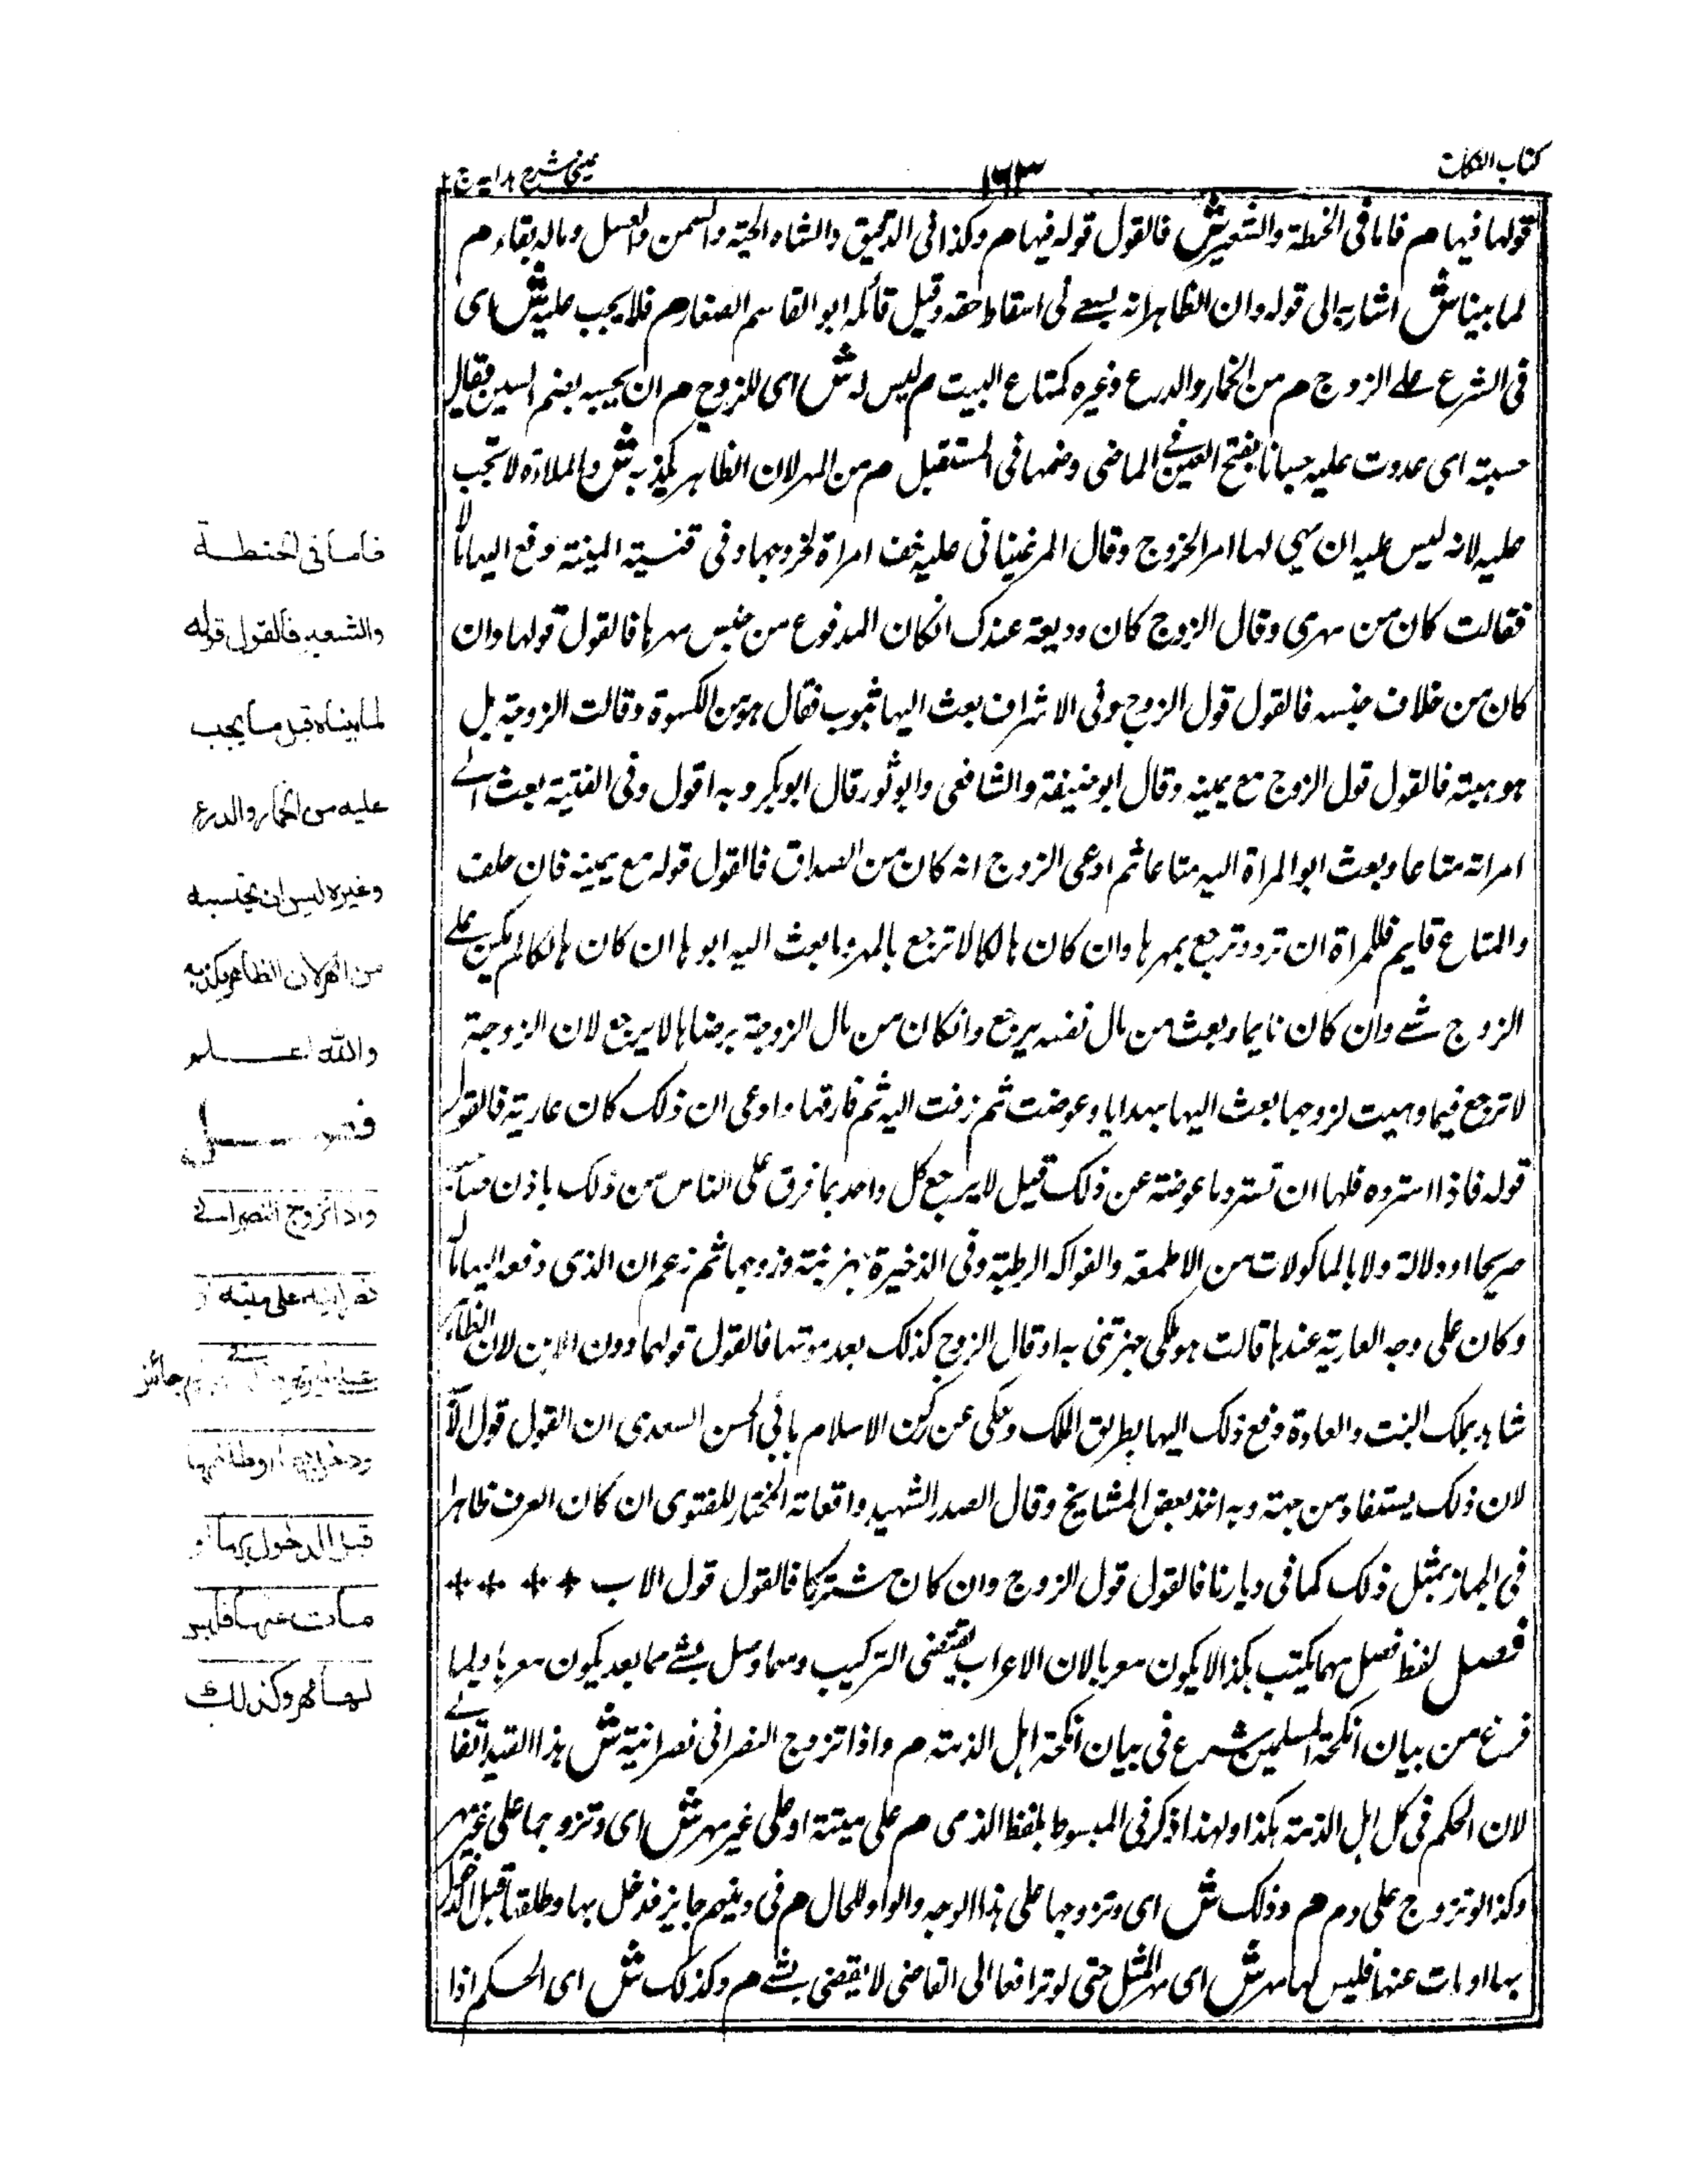 كتاب النكاح
١٦٣
عينى شرح هدايه ج ٢
قولها فيها م فاما فى الحنطة والشعير ش فالقول قوله فيها م وكذا فى الدقيق والشاه الحية والسمن والعسل وماله بقاء م
لما بينا ش اشار به الى قوله وان الظاهر انه يسعے فى اسقاط حقه وقيل قائله ابو القاسم الصفار م فلا يجب عليه ش اى
فى الشرع علے الزوج م من الخمار والدرع وغيره كمتاع البيت م ليس له ش اى للزوج م ان يحسبه بضم السين فقال
حسبته اى عددت عليه حسبانا بفتح العين فے الماضى وضمها فى المستقبل م من المهر لان الظاهر يكذبه ش والملاءة لا تجب
عليه لانه ليس عليه ان يهيى لها امر الخروج وقال المرغينانى عليه خف امراة لخروجها وفى قنية المنية دفع اليها مالا
فقالت كان من مهرى وقال الزوج كان وديعة عندك انكان المدفوع من جنس مهرها فالقول قولها وان
كان من خلاف جنسه فالقول قول الزوج وفى الاشراف بعث اليها بثوب فقال هو من الكسوة وقالت الزوجة بل
هو هبته فالقول قول الزوج مع يمينه وقال ابو حنيفة والشافعى وابو ثور قال ابو بكر وبه اقول وفى القنية بعث الے
امراته متاعا وبعث ابو المراة اليه متاعا ثم ادعى الزوج انه كان من الصداق فالقول قوله مع يمينه فان حلف
والمتاع قايم فللمراة ان ترد وترجع بمهرها وان كان هالكا لا ترجع بالمهر وما بعث اليه ابوها ان كان هالكا لم يكن علے
الزوج شے وان كان قايما وبعث من مال نفسه يرجع وانكان من مال الزوجة برضاها لا يرجع لان الزوجة
لا ترجع فيما وهبت لزوجها بعث اليها بهدايا وعوضت ثم زفت اليه ثم فارقها وادعى ان ذلك كان عارية فالقول
قوله فاذا استرده فلها ان تسترد ما عوضته عن ذلك قيل لا يرجع كل واحد بما فرق على الناس من ذلك باذن صاحبه
صريحا او دلالة ولا بالماكولات من الاطعمة والفواكه الرطبة وفى الذخيرة جهز بنته وزوجها ثم زعم ان الذى دفعه اليها ماله
وكان على وجه العارية عندها قالت هو ملكى جهزتنى به او قال الزوج كذلك بعد موتها فالقول قولهما دون الاب لان الظاهر
شاهد بملك البنت والعادة دفع ذلك اليها بطريق الملك وحكى عن ركن الاسلام بابى الحسن السعدى ان القول قول الاب
لان ذلك يستفاد من جهته وبه اخذ بعض المشايخ وقال الصدر الشهيد واقعاته المختار للفتوى ان كان العرف ظاهرا
فى الجهاز بمثل ذلك كما فى ديارنا فالقول قول الزوج وان كان مشتركا فالقول قول الاب
فصل لفظ فصل مهما يكتب هكذا لا يكون معربا لان الاعراب يقتضى التركيب ومهما وصل بشے مما بعد يكون معربا ولما
فرغ من بيان انكحة المسلمين شرع فى بيان انكحة اهل الذمة م واذا تزوج النصرانى نصرانية ش هذا القيد اتفاقے
لان الحكم فى كل اهل الذمة هكذا ولهذا ذكر فى المبسوط بلفظ الذمى م على ميتة او على غير مهر ش اى وتزوجها على غير مهر
وكذا لو تزوج على دم م وذلك ش اى وتزوجها على هذا الوجه والواو للحال م فى دينهم جايز فدخل بها وطلقها قبل الدخول
بها او مات عنها فليس لها مهر ش اى مهر المثل حتى لو ترافعا الى القاضى لا يقضى بشے م وكذلك ش اى الحكم اذا
فاما فى الحنطة
والشعير فالقول قوله
لما بيناه قيل ما يجب
عليه من الخمار والدرع
وغيره ليس ان يحتسبه
من المهر لان الظاهر يكذبه
والله اعلم
فصل
واذا تزوج النصرانے
نصرانية على ميتة او
جائز
ودخل بها او طلقها
قبل الدخول بها او
مات عنها فليس
لها مهر وكذلك